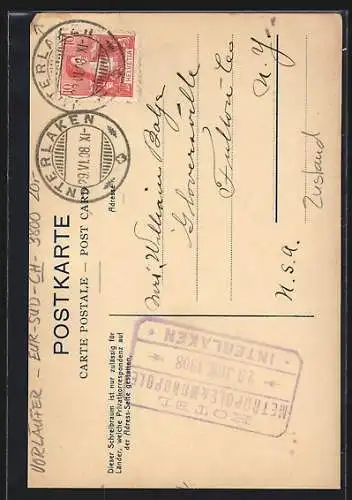 VORLÄUFER - EUR-SÜD-CH- 3800 20,-
POSTKARTE
CARTE POSTALE. — POST CARD.
Adresse
Dieser Schreibraum ist nur zulässig für
Länder, welche Privatkorrespondenz auf
der Adress-Seite gestatten.
INTERLAKEN
29.VI.08.XI-
INTERLAKEN
VI. 08 XI-
10
HELVETIA
Mrs. William
Gloversville
Fulton Co.
N. Y.
U.S.A.
Zustand
HOTEL
METROPOLE & MONOPOLE
29 JUN 1908
INTERLAKEN